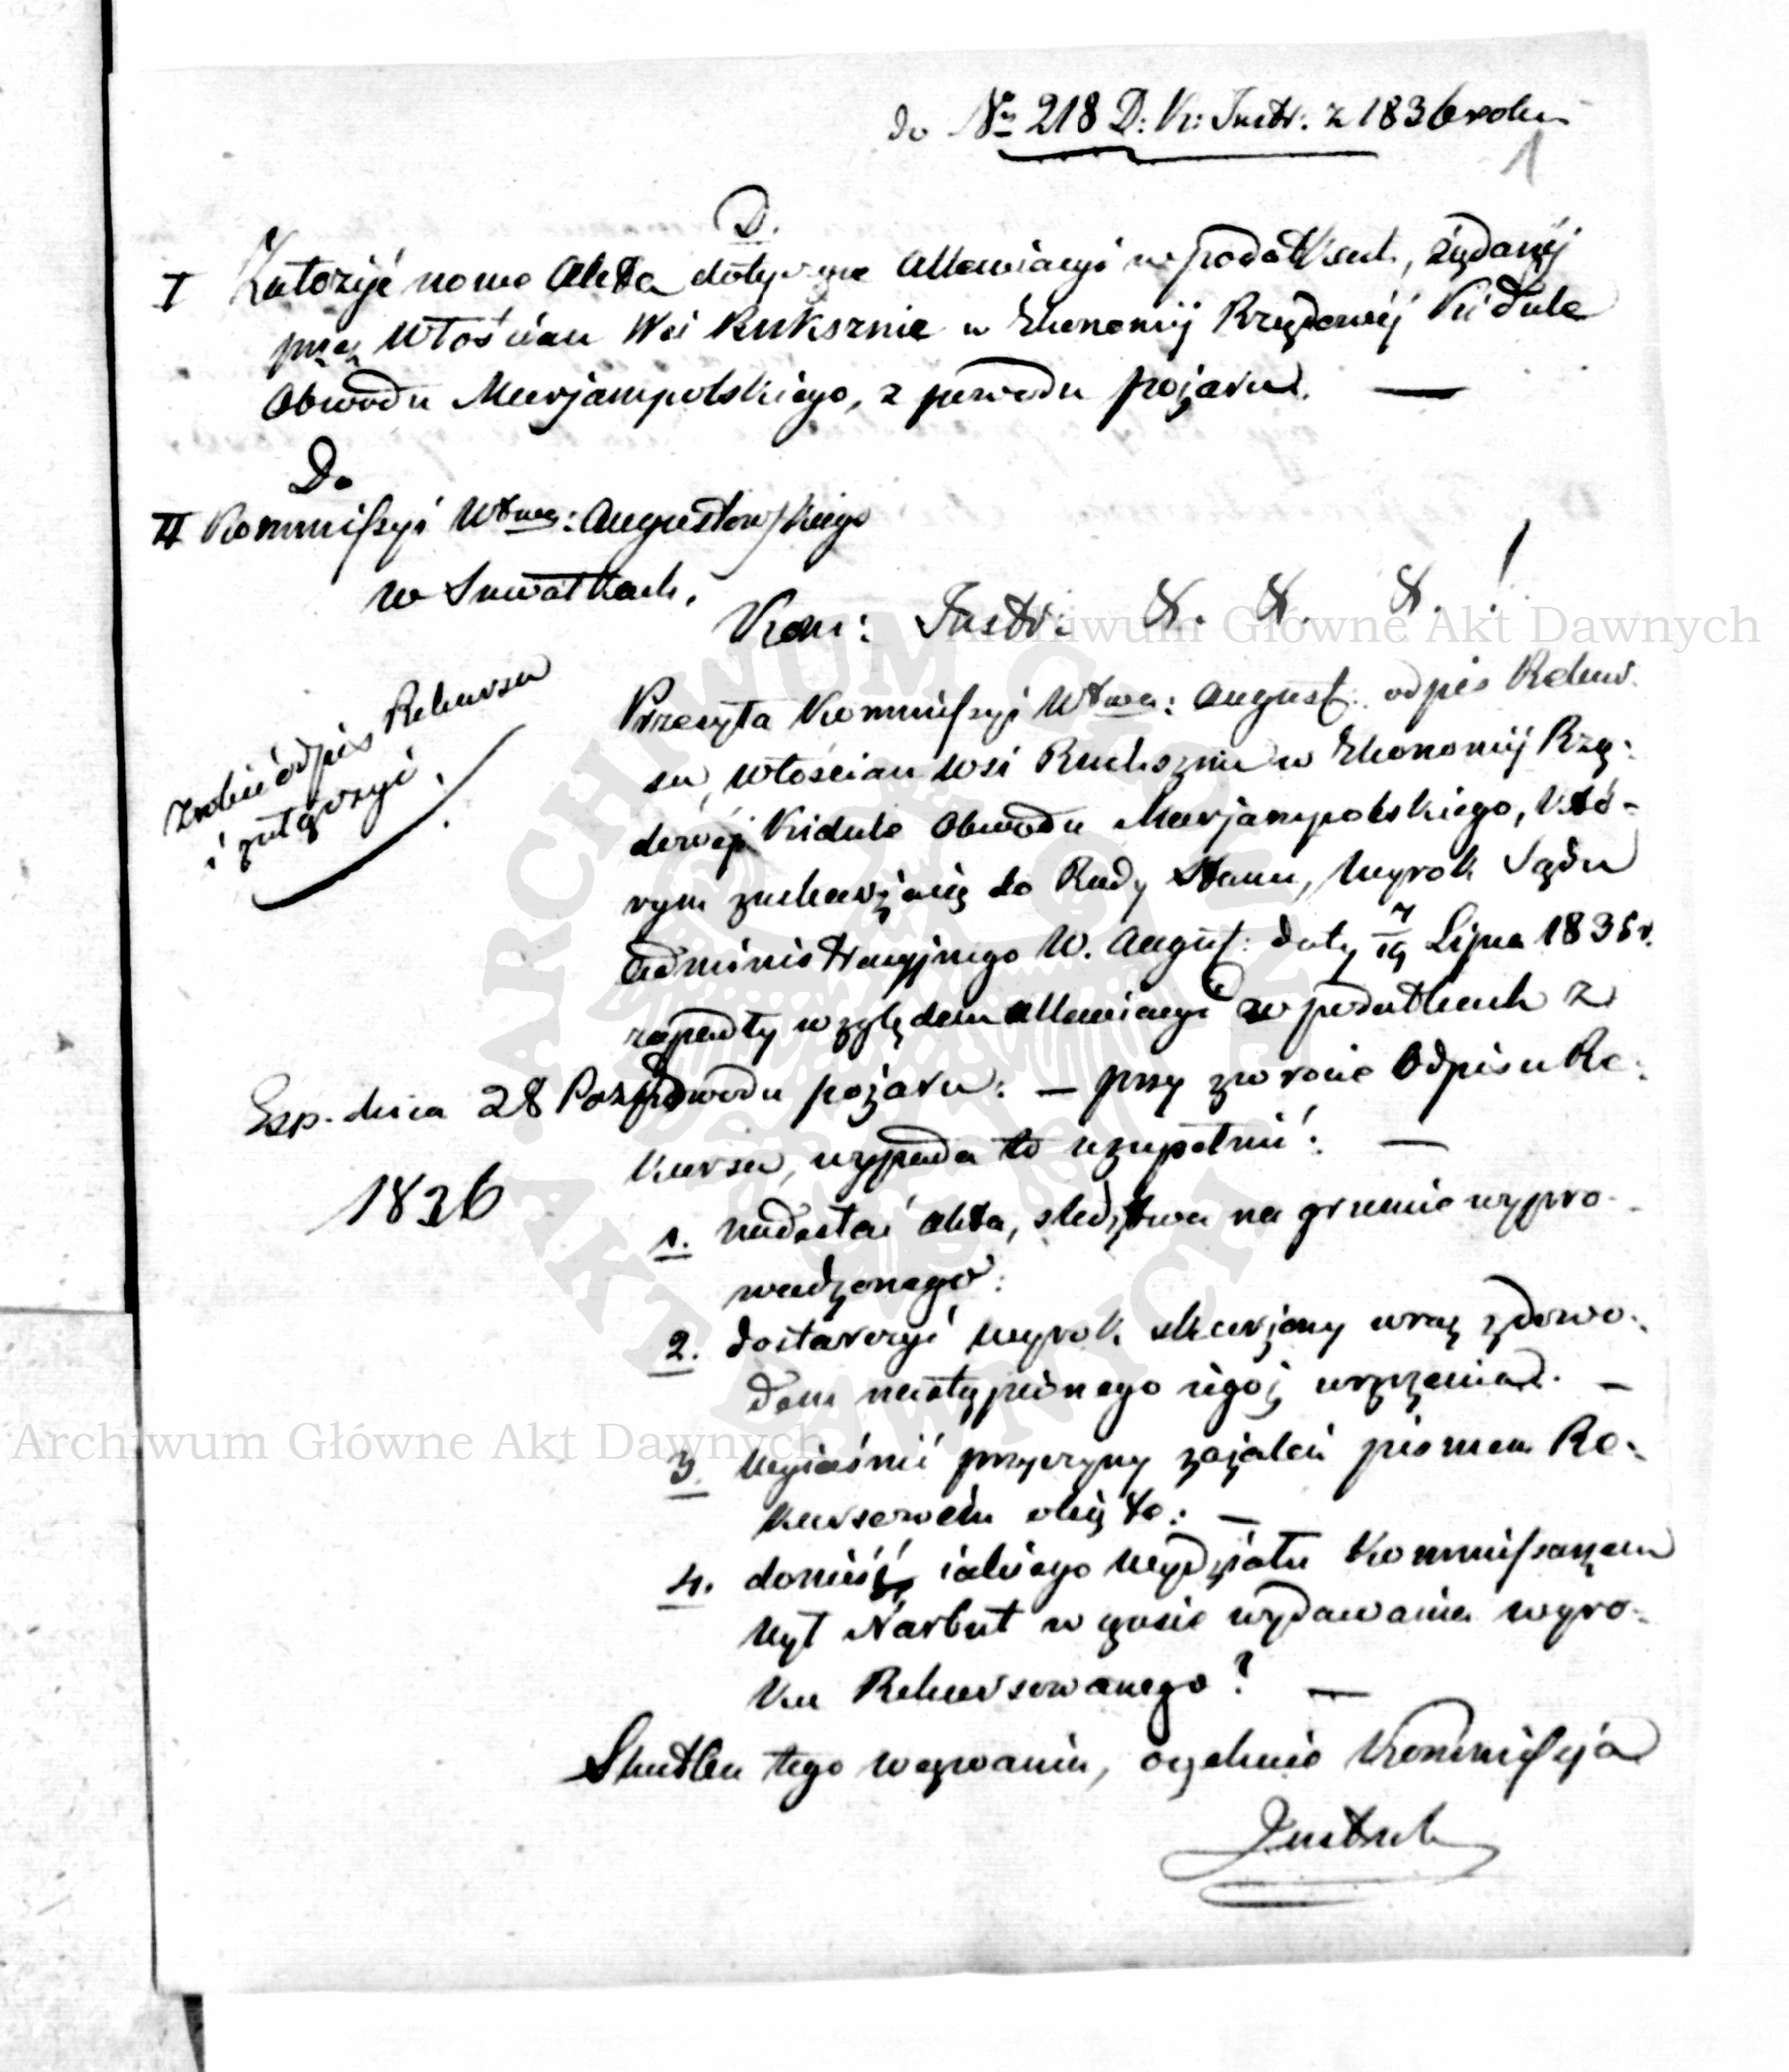 do Nr 218 D: K: Instr. z 1836 roku
1
D.
I Założyć nowe Akta dotyczące Allewiacyi w podatkach, żądanéj
przez Włościan Wsi Ruksznie w Ekonomij Rządowéj Kidule
Obwodu Marjampolskiego, z powodu pożaru. —
Do
II Kommissyi Wtwa: Augustowskiego
w Suwałkach.
Kom: Instr: &. &. &. !
zrobić odpis Rekursu
i załączyć.
Przesyła Kommissyi Wtwa: August: odpis Rekur-
su, włościan wsi Rukszniu w Ekonomij Rzą-
dowéj Kidule Obwodu Marjampolskiego, któ-
rym zaskarżaią do Rady Stanu, wyrok Sądu
Administracyjnego W. August: daty 7/19 Lipca 1835 r.
zapadły względem Allewiacyi w podatkach z
powodu pożaru: — przy zwrocie Odpisu Re-
Exp. dnia 28 Paź
1836
kursu, wypada to uzupełnić: —
1. nadesłać akta, śledztwa na gruncie wypro-
wadzonego:
2. dostarczyć wyrok skarżony wraz z dowo-
dem nastąpionego iegoż wręczenia. —
3. Wyiaśnić przyczyny zażaleń pismem Re-
kursowém obięte: —
4. donieść iakiego Wydziału Kommissarzem
był Narbut w czasie wydawania wyro-
ku Rekursowanego? —
Skutku tego wezwania, oczekuie Kommissyja